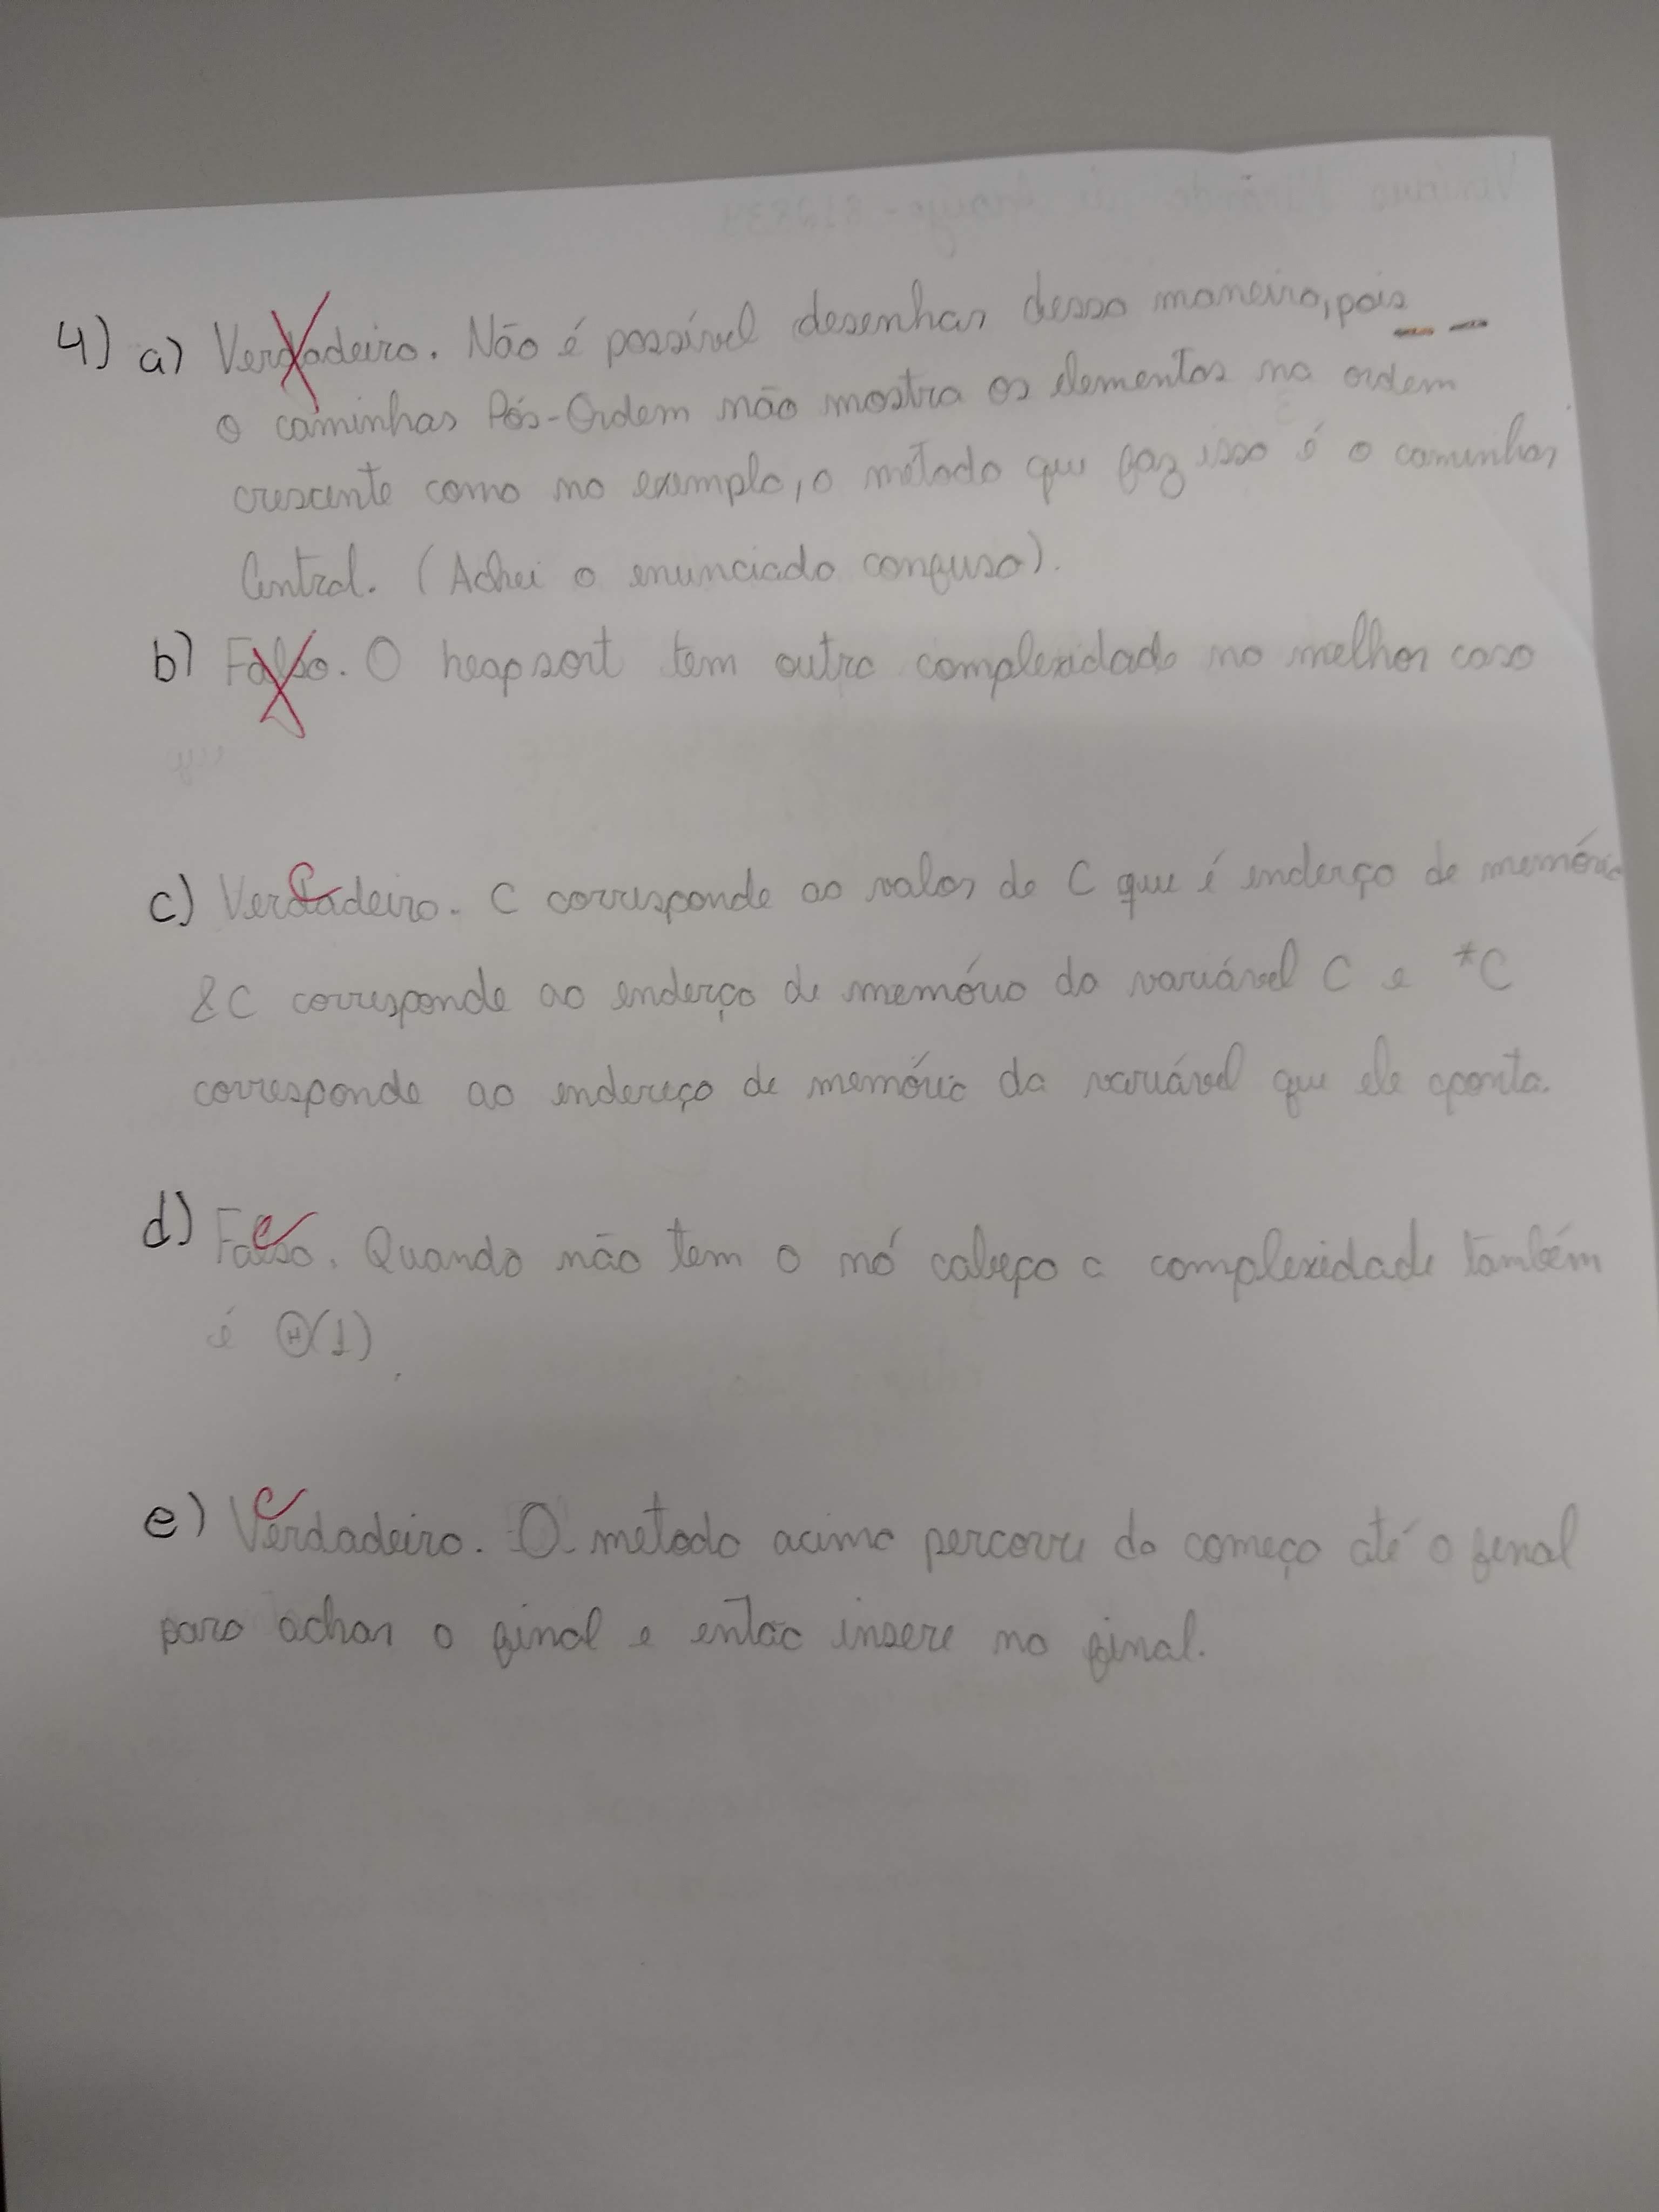 4) a) Verdadeiro. Não é possível desenhar dessa maneira, pois
o caminhar Pós-Ordem não mostra os elementos na ordem
crescente como no exemplo, o método que faz isso é o caminhar
Central. (Achei o enunciado confuso).
b) Falso. O heapsort tem outra complexidade no melhor caso
c) Verdadeiro. C corresponde ao valor de C que é enderço de memória
&C corresponde ao enderço de memória da variável C e *C
corresponde ao endereço de memória da variável que ele aponta.
d) Falso. Quando não tem o nó cabeça a complexidade também
é Θ(1)
e) Verdadeiro. O metodo acima percorre do começo até o final
para achar o final e então insere no final.